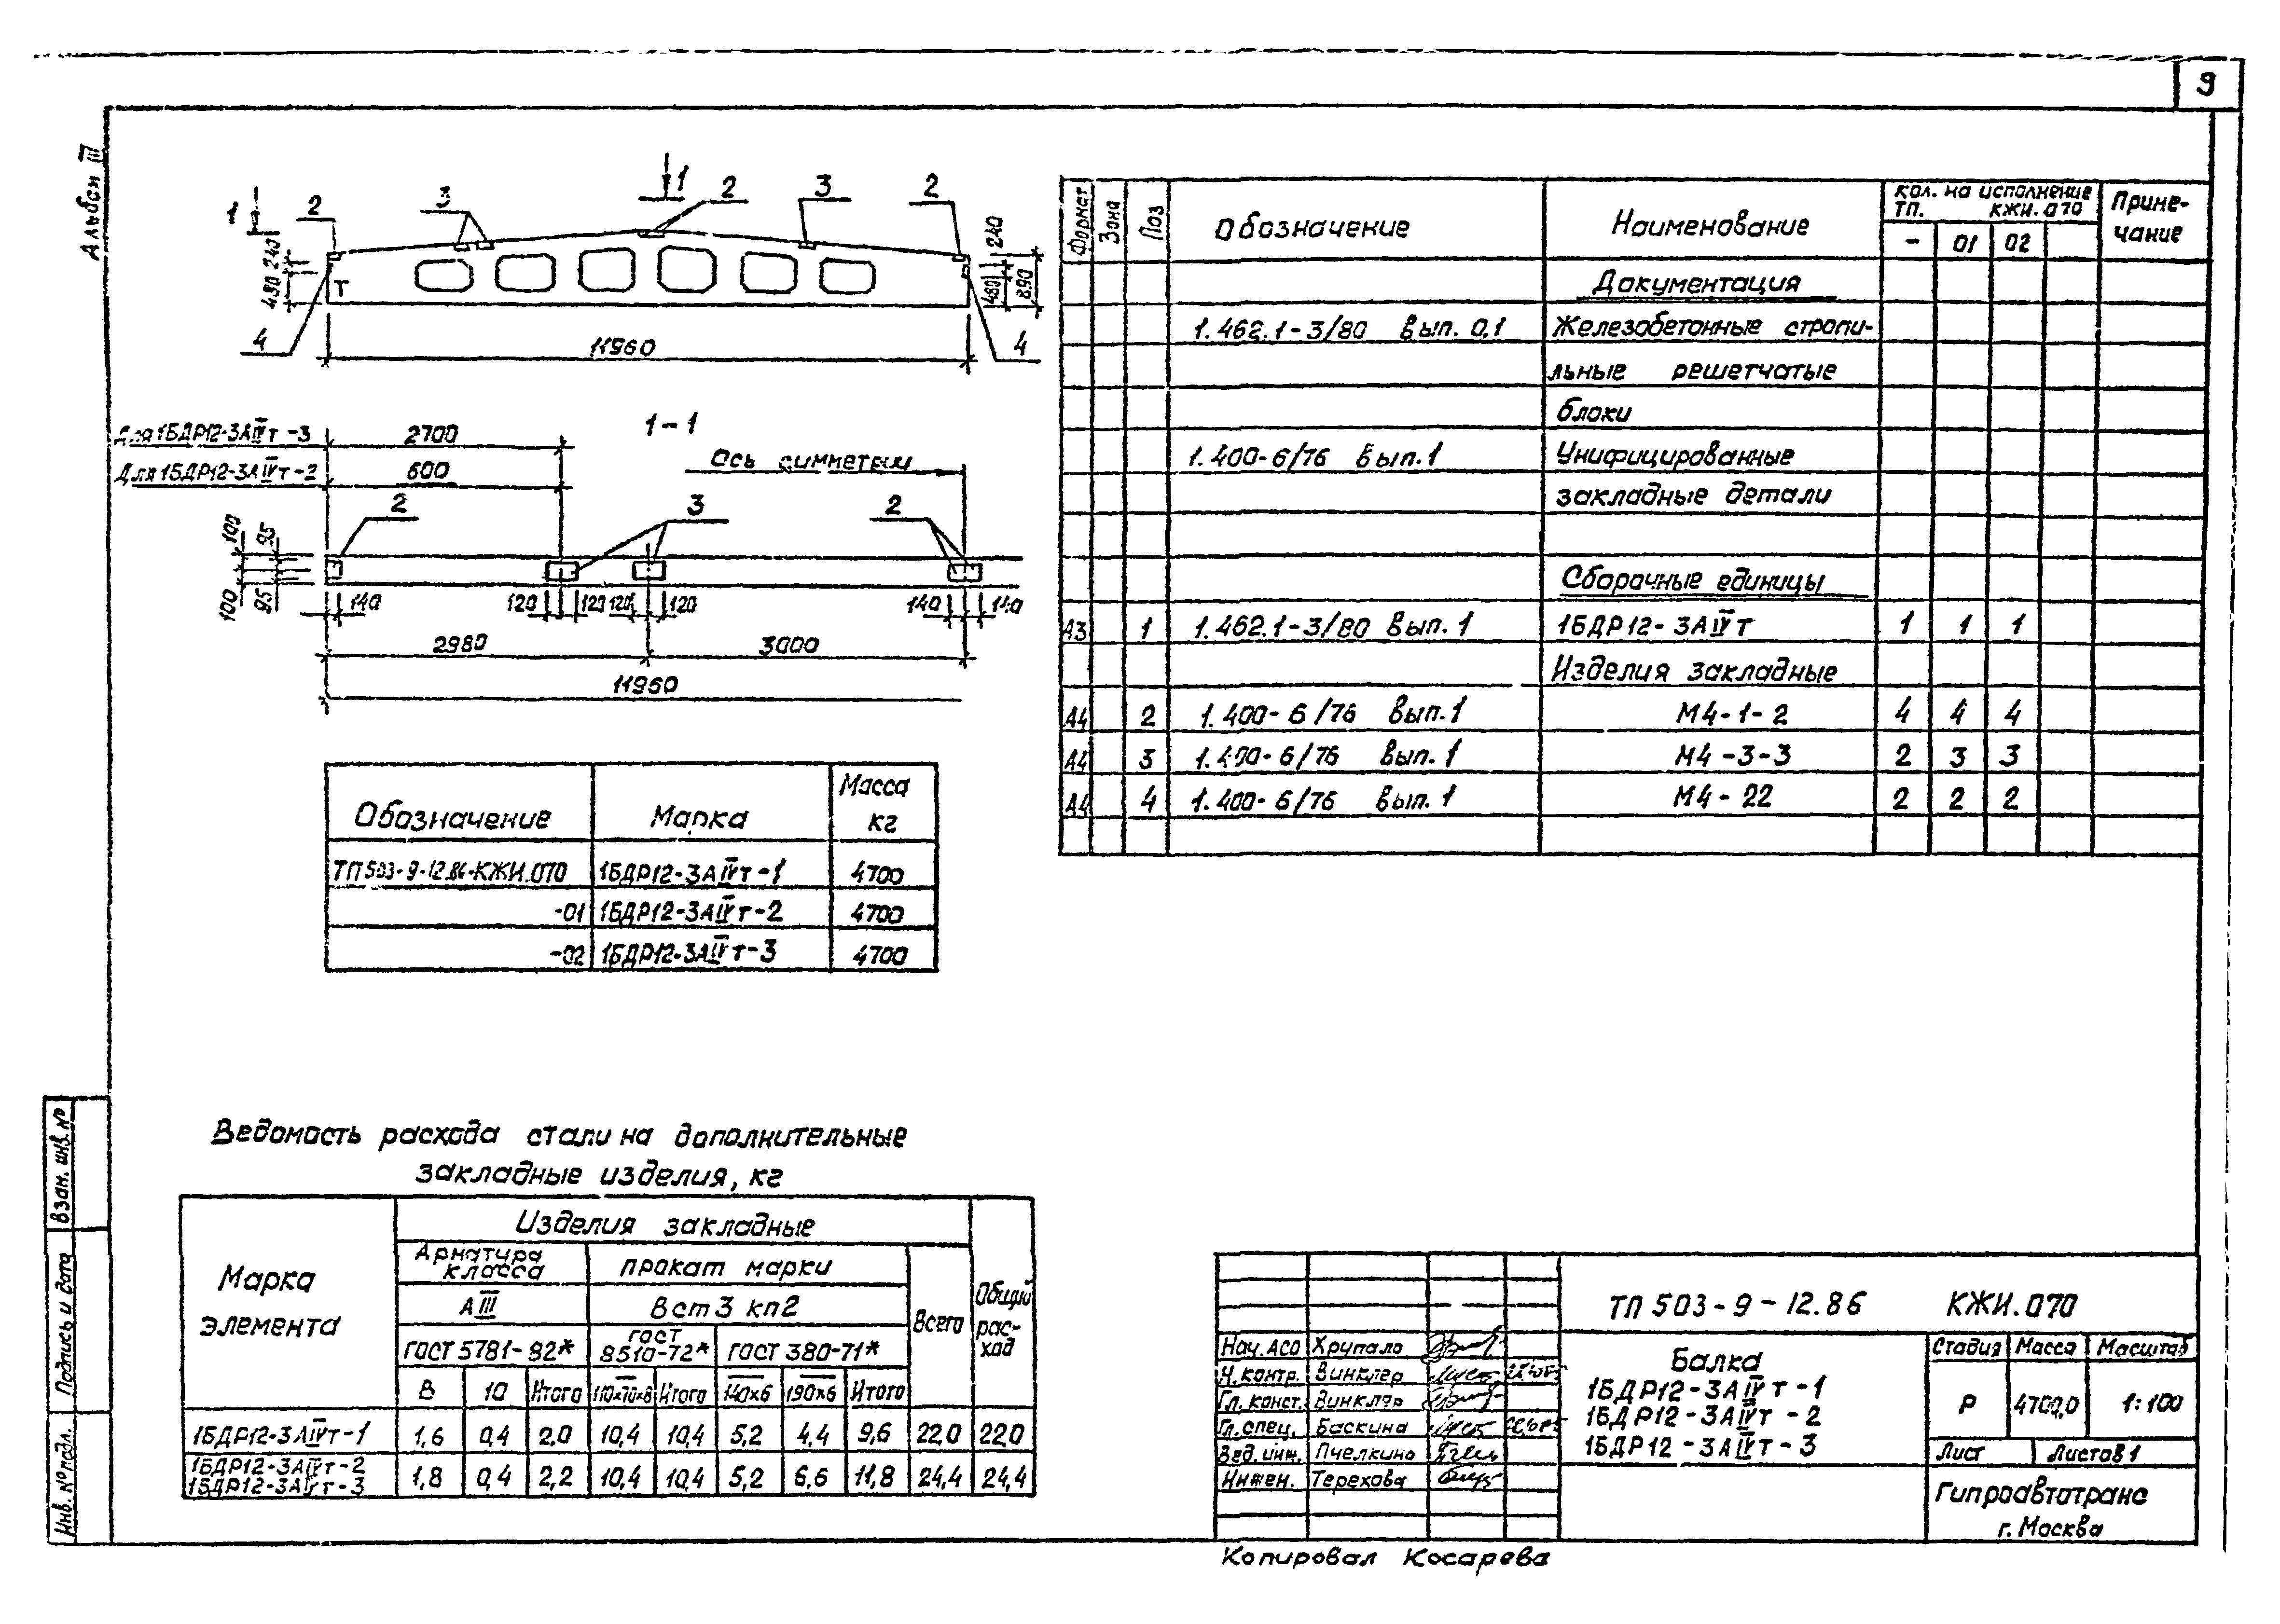 9
Альбом III
1
1
2
3
2
3
2
240
480
Т
240
480
890
4
4
11960
1-1
Для 1БДР12-3АIVт-3
2700
Для 1БДР12-3АIVт-2
600
Ось симметрии
2
3
2
100
95
100
95
140
120
120
120
120
140
140
2980
3000
11960
Обозначение
Марка
Масса
кг
ТП503-9-12.86-КЖИ.070 1БДР12-3АIVт-1 4700
-01 1БДР12-3АIVт-2 4700
-02 1БДР12-3АIVт-3 4700
Формат
Зона
Поз
Обозначение
Наименование
кол. на исполнение
ТП. КЖИ.070
- 01 02
Приме-
чание
Документация
1.462.1-3/80 вып. 0,1 Железобетонные стропи-
льные решетчатые
блоки
1.400-6/76 вып.1 Унифицированные
закладные детали
Сборочные единицы
А3 1 1.462.1-3/80 вып.1 1БДР12-3АIVт 1 1 1
Изделия закладные
А4 2 1.400-6/76 вып.1 М4-1-2 4 4 4
А4 3 1.400-6/76 вып.1 М4-3-3 2 3 3
А4 4 1.400-6/76 вып.1 М4-22 2 2 2
Ведомость расхода стали на дополнительные
закладные изделия, кг
Марка
элемента
Изделия закладные
Арматура
класса
прокат марки
АIII
Вст3 кп2
ГОСТ 5781-82*
гост
8510-72*
ГОСТ 380-71*
Всего
Общий
рас-
ход
8 10 Итого 110×70×8 Итого 140×6 190×6 Итого
1БДР12-3АIVт-1 1,6 0,4 2,0 10,4 10,4 5,2 4,4 9,6 22,0 22,0
1БДР12-3АIVт-2
1БДР12-3АIVт-3 1,8 0,4 2,2 10,4 10,4 5,2 6,6 11,8 24,4 24,4
Взам. инв. №
Подпись и дата
Инв. № подл.
ТП 503-9-12.86 КЖИ.070
Нач.АСО Хрупало
Н.контр. Винклер
Гл.конст. Винклер
Гл.спец. Баскина
Вед.инж. Пчелкина
Инжен. Терехова
Балка
1БДР12-3АIVт-1
1БДР12-3АIVт-2
1БДР12-3АIVт-3
Стадия Масса Масштаб
Р 4700,0 1:100
Лист Листов 1
Гипроавтотранс
г. Москва
Копировал Косарева